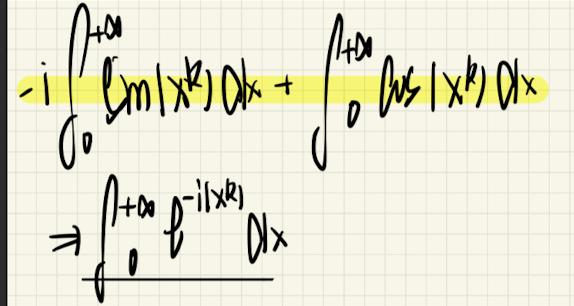 -i ∫₀^{+∞} sin(x^k) dx + ∫₀^{+∞} cos(x^k) dx
⇒ ∫₀^{+∞} e^{-i(x^k)} dx